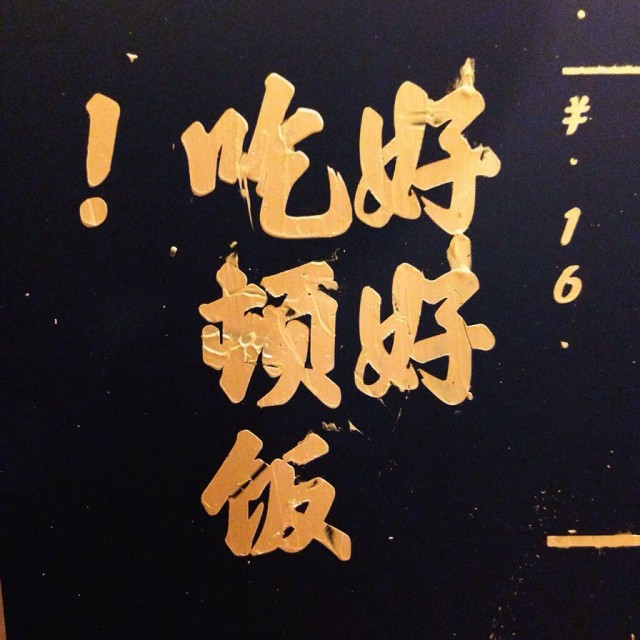 ¥.16.
好好
吃顿饭
！